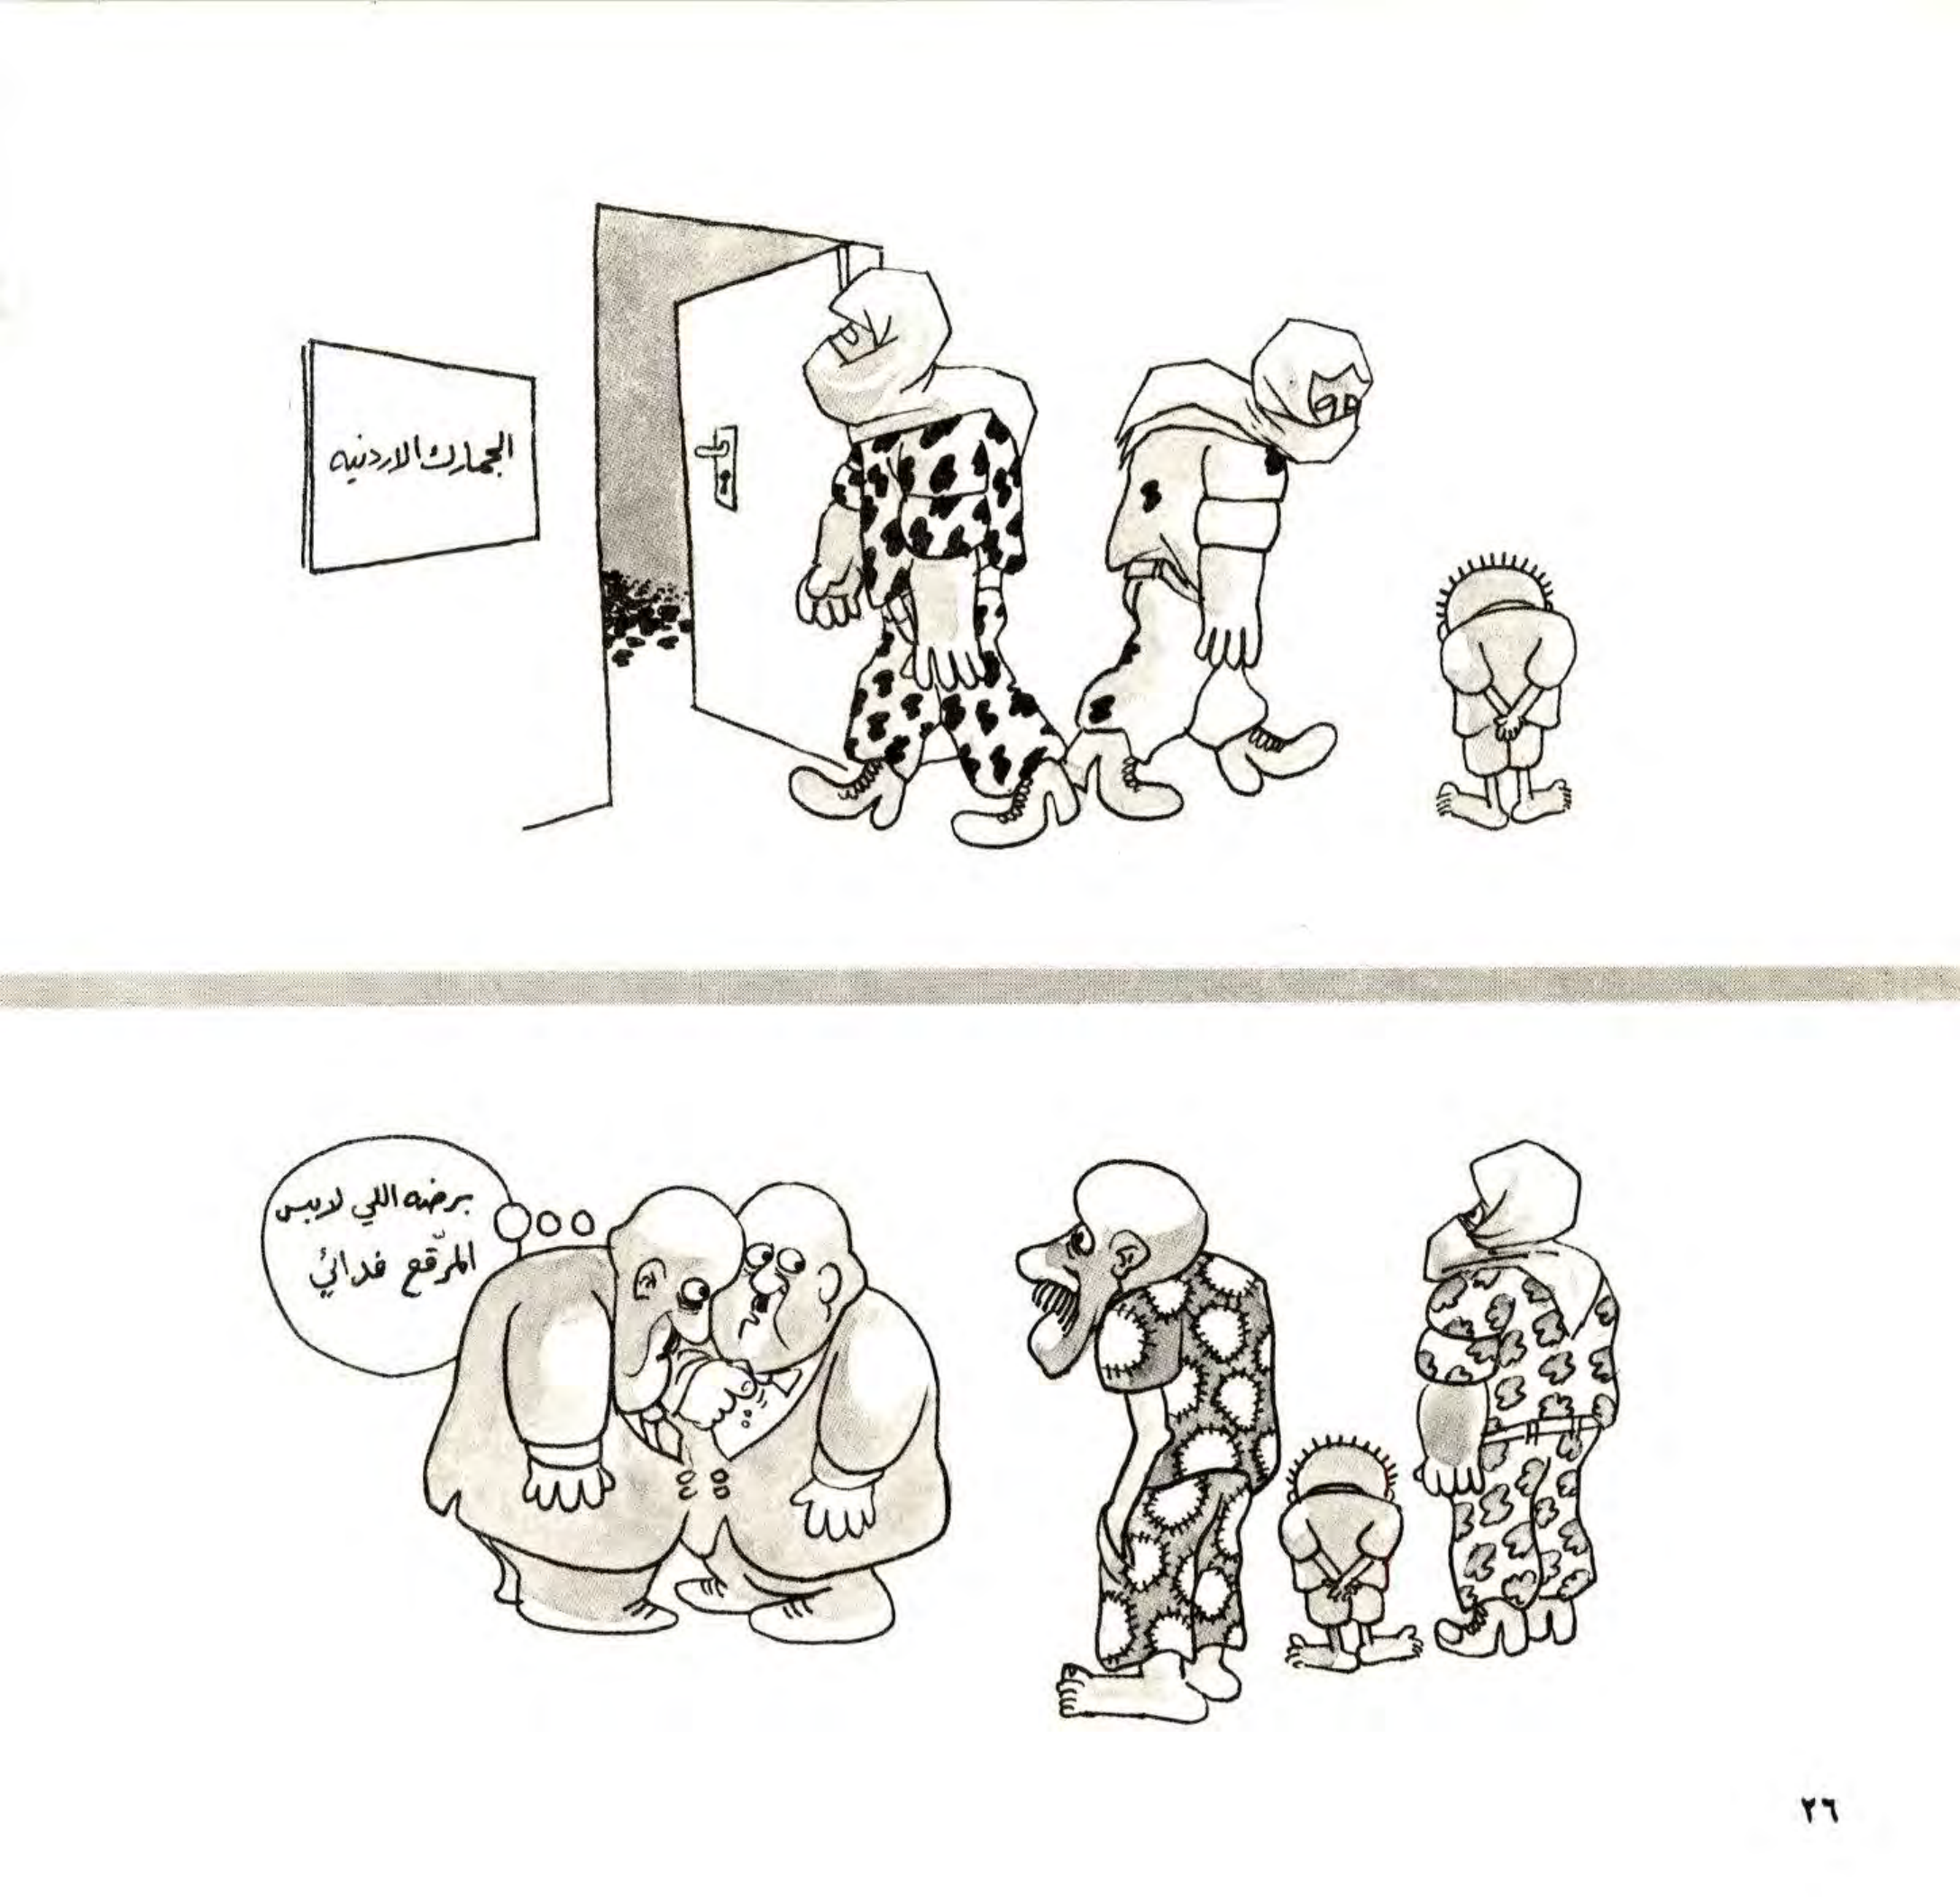 الجمارك الاردنيه
برضه اللي لابس
المرقّع فدائي
٢٦